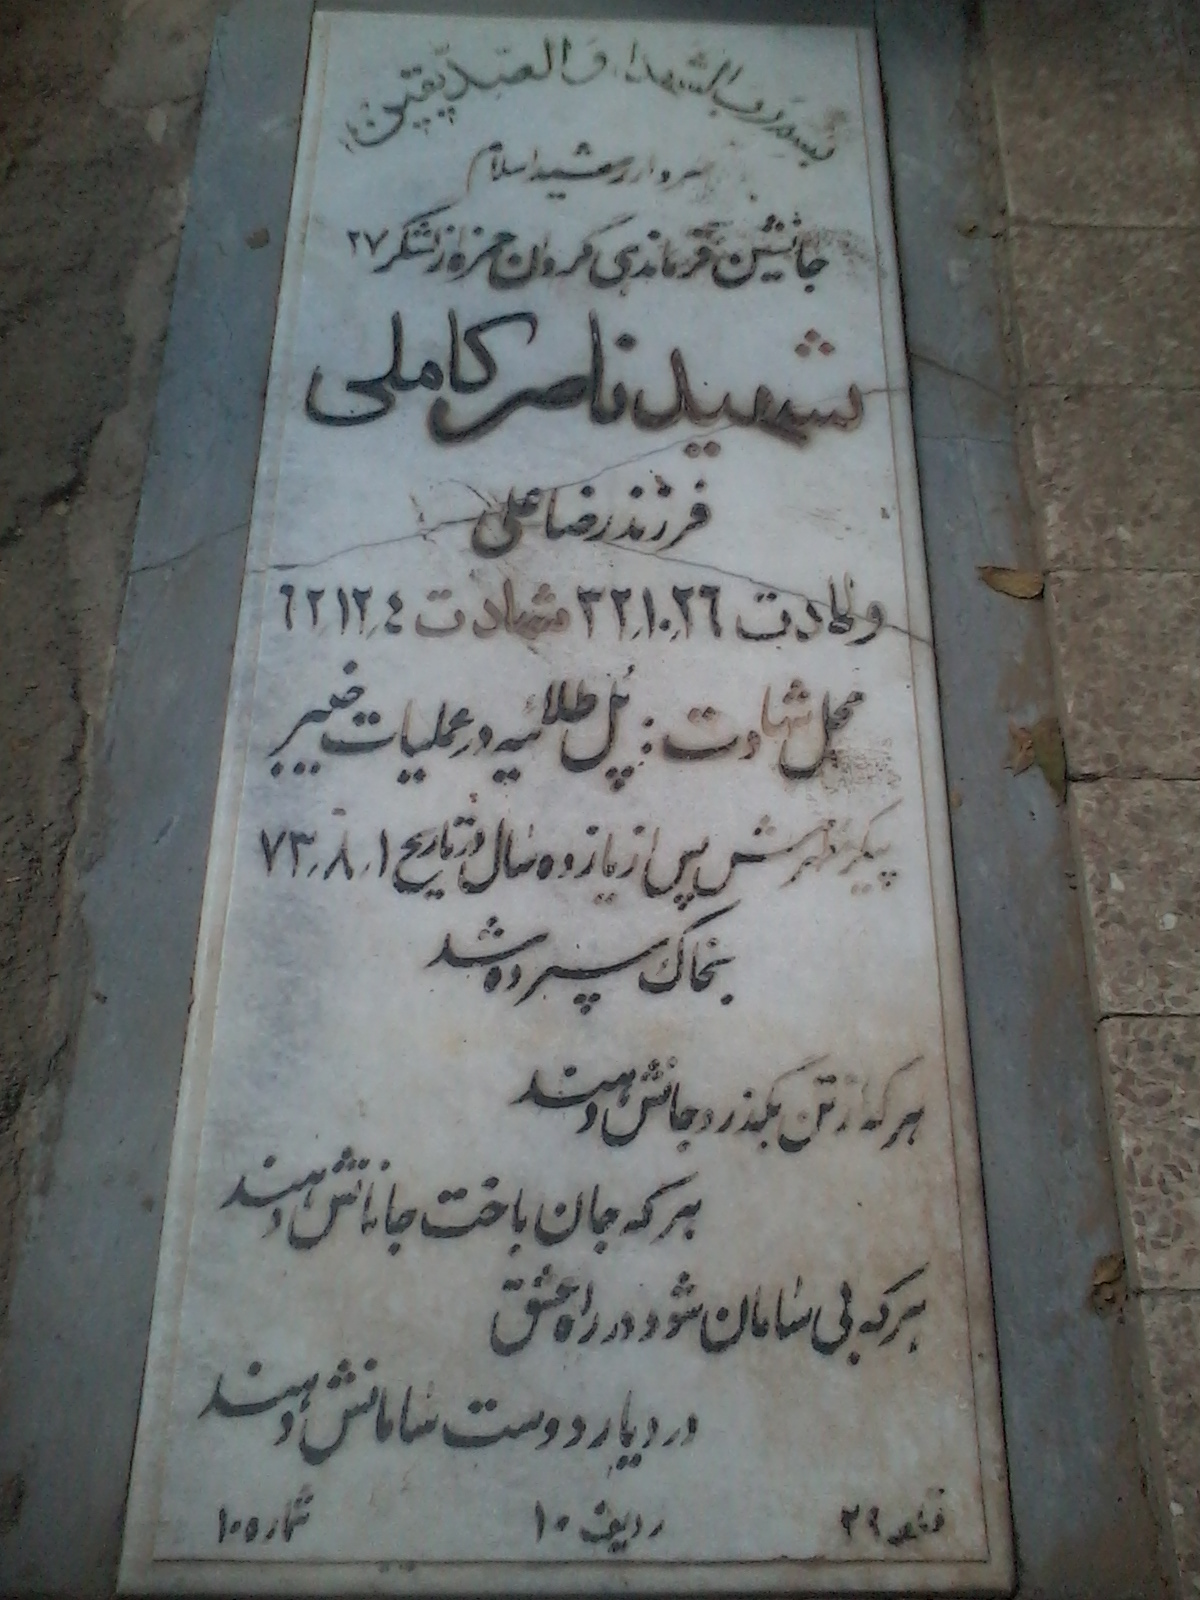 بسم رب الشهدا و الصدیقین
سردار رشید اسلام
جانشین فرماندهی گروان حمزه از لشگر ۲۷
شهید ناصر کاملی
فرزند رضا علی
ولادت ۳۲٫۱۰٫۲۶ شهادت ۶۲٫۱۲٫۴
محل شهادت : پل طلائیه در عملیات خیبر
پیکر مطهرش پس از یازده سال در تاریخ ۷۳٫۸٫۱
بخاک سپرده شد
هر که از تن بگذرد جانش دهند
هر که جان باخت جانانش دهند
هر که بی سامان شود در راه عشق
در دیار دوست سامانش دهند
قطعه ۲۹ ردیف ۱۰ شماره ۱۰۵